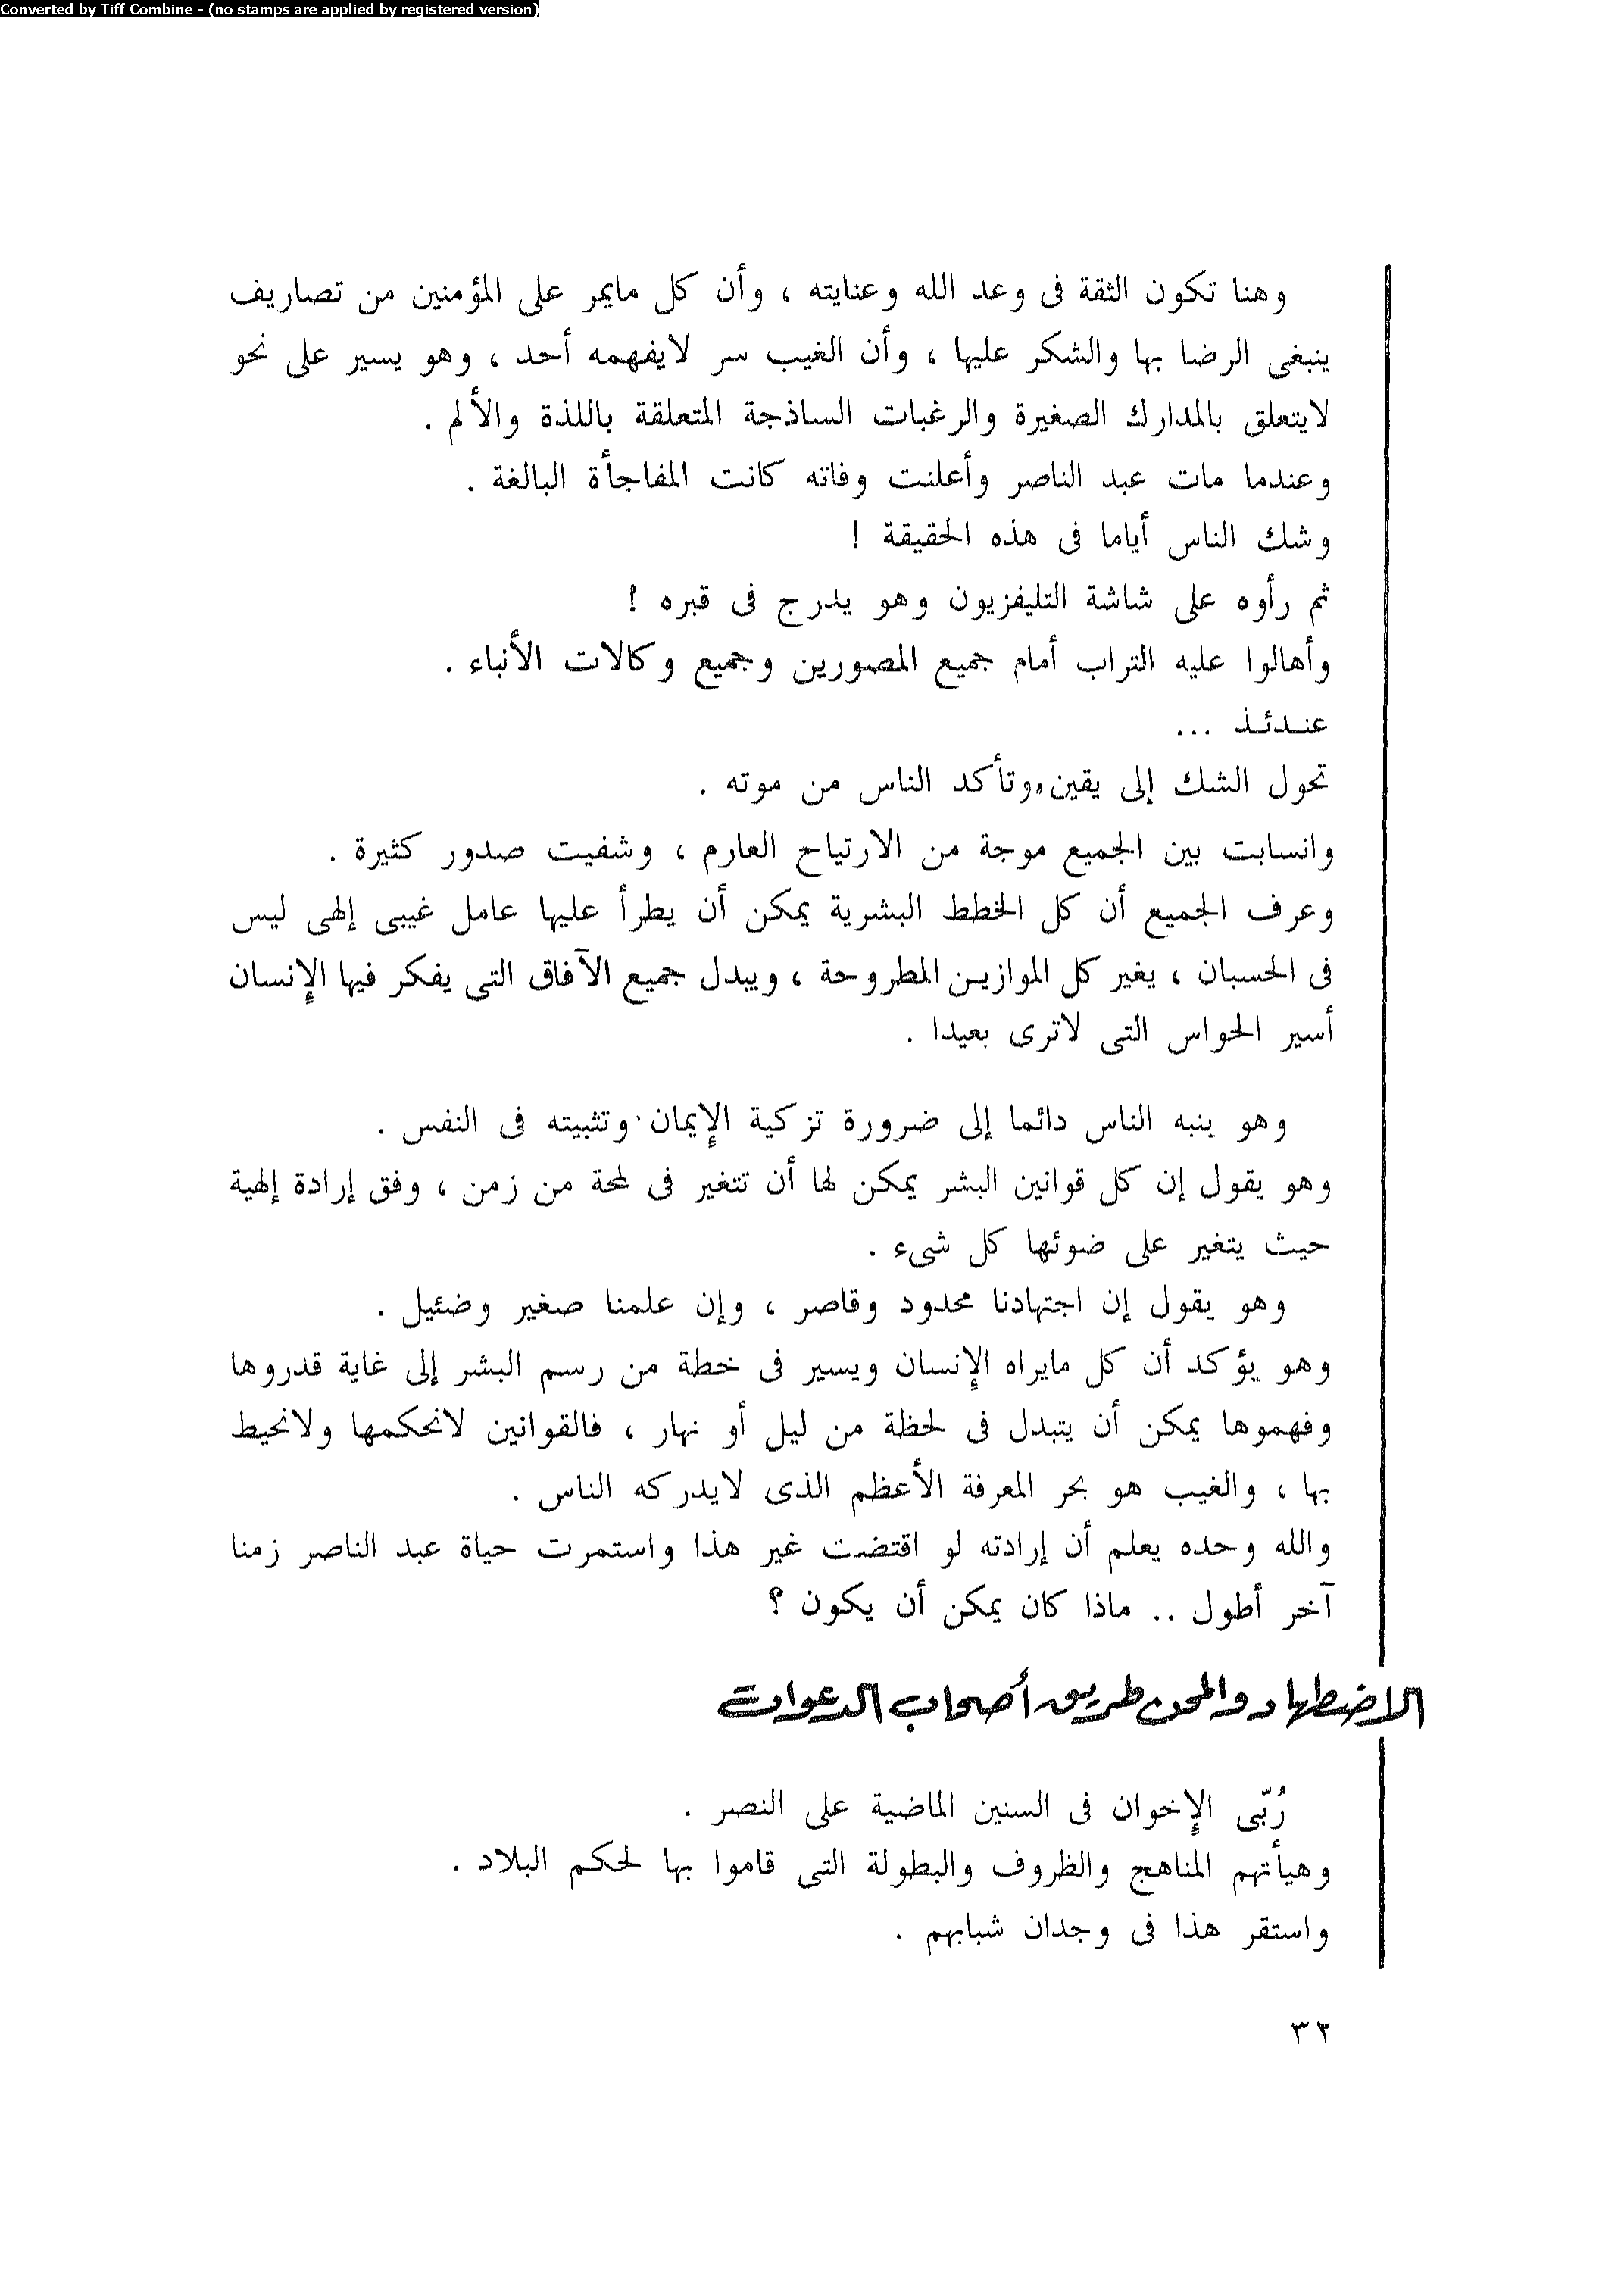 Converted by Tiff Combine - (no stamps are applied by registered version)
وهنا تكون الثقة فى وعد الله وعنايته ، وأن كل مايمر على المؤمنين من تصاريف
ينبغى الرضا بها والشكر عليها ، وأن الغيب سر لايفهمه أحد ، وهو يسير على نحو
لايتعلق بالمدارك الصغيرة والرغبات الساذجة المتعلقة باللذة والألم .
وعندما مات عبد الناصر وأعلنت وفاته كانت المفاجأة البالغة .
وشك الناس أياما فى هذه الحقيقة !
ثم رأوه على شاشة التليفزيون وهو يدرج فى قبره !
وأهالوا عليه التراب أمام جميع المصورين وجميع وكالات الأنباء .
عندئذ ...
تحول الشك إلى يقين، وتأكد الناس من موته .
وانسابت بين الجميع موجة من الارتياح العارم ، وشفيت صدور كثيرة .
وعرف الجميع أن كل الخطط البشرية يمكن أن يطرأ عليها عامل غيبى إلهى ليس
فى الحسبان ، يغير كل الموازين المطروحة ، ويبدل جميع الآفاق التى يفكر فيها الإنسان
أسير الحواس التى لاترى بعيدا .
وهو ينبه الناس دائما إلى ضرورة تزكية الإيمان وتثبيته فى النفس .
وهو يقول إن كل قوانين البشر يمكن لها أن تتغير فى لمحة من زمن ، وفق إرادة إلهية
حيث يتغير على ضوئها كل شىء .
وهو يقول إن اجتهادنا محدود وقاصر ، وإن علمنا صغير وضئيل .
وهو يؤكد أن كل مايراه الإنسان ويسير فى خطة من رسم البشر إلى غاية قدروها
وفهموها يمكن أن يتبدل فى لحظة من ليل أو نهار ، فالقوانين لانحكمها ولانحيط
بها ، والغيب هو بحر المعرفة الأعظم الذى لايدركه الناس .
والله وحده يعلم أن إرادته لو اقتضت غير هذا واستمرت حياة عبد الناصر زمنا
آخر أطول .. ماذا كان يمكن أن يكون ؟
الاضطهاد والمحن طريق أصحاب الدعوات
رُبّى الإخوان فى السنين الماضية على النصر .
وهيأتهم المناهج والظروف والبطولة التى قاموا بها لحكم البلاد .
واستقر هذا فى وجدان شبابهم .
٣٢